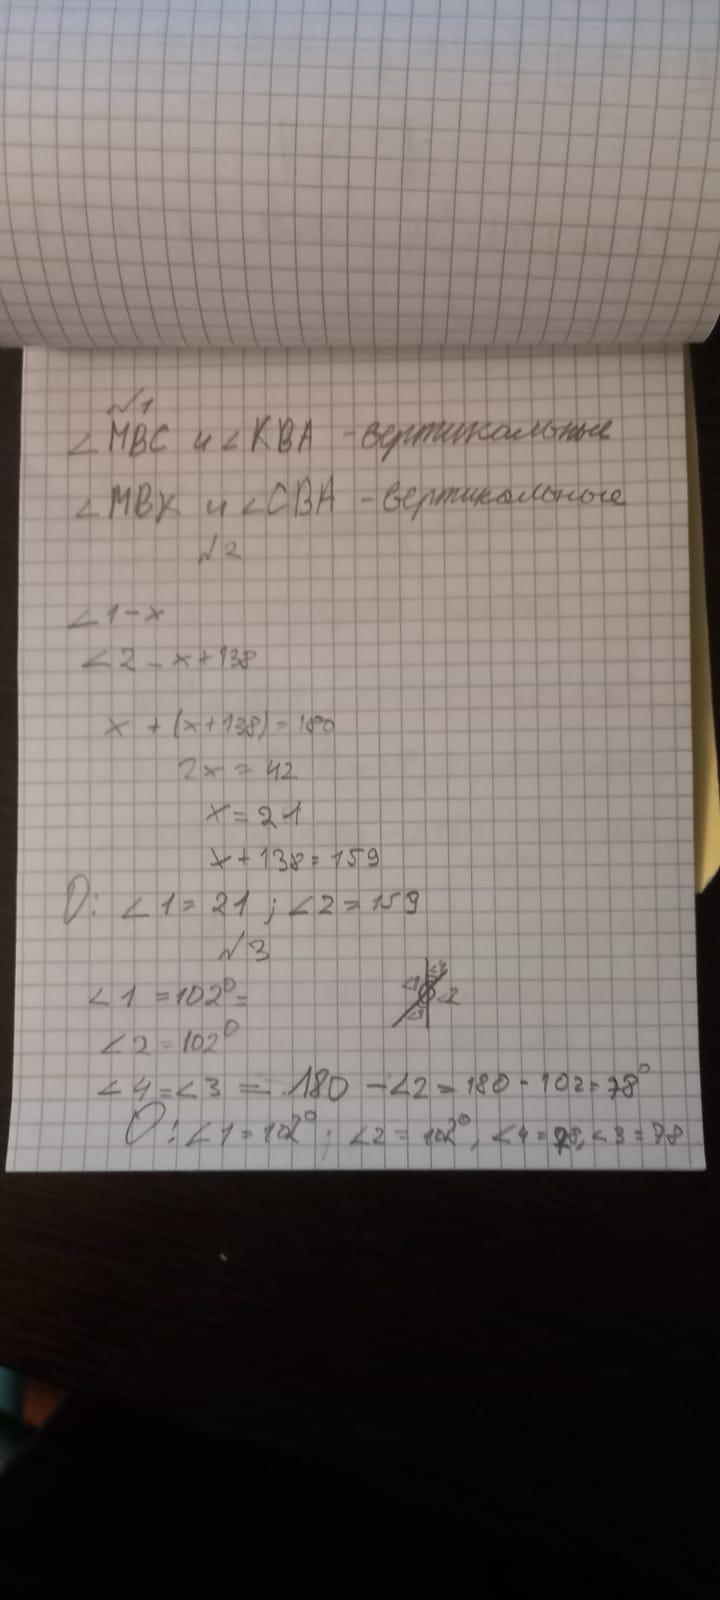 №1
∠MBC и ∠KBA - вертикальные
∠MBK и ∠CBA - вертикальные
№2
∠1 - x
∠2 - x+138
x + (x+138) = 180
2x = 42
x = 21
x+138 = 159
О: ∠1 = 21 ; ∠2 = 159
№3
∠1 = 102° =
∠2 = 102°
∠4 = ∠3 = 180 - ∠2 = 180 - 102 = 78°
О: ∠1 = 102° ; ∠2 = 102°, ∠4 = 78, ∠3 = 78